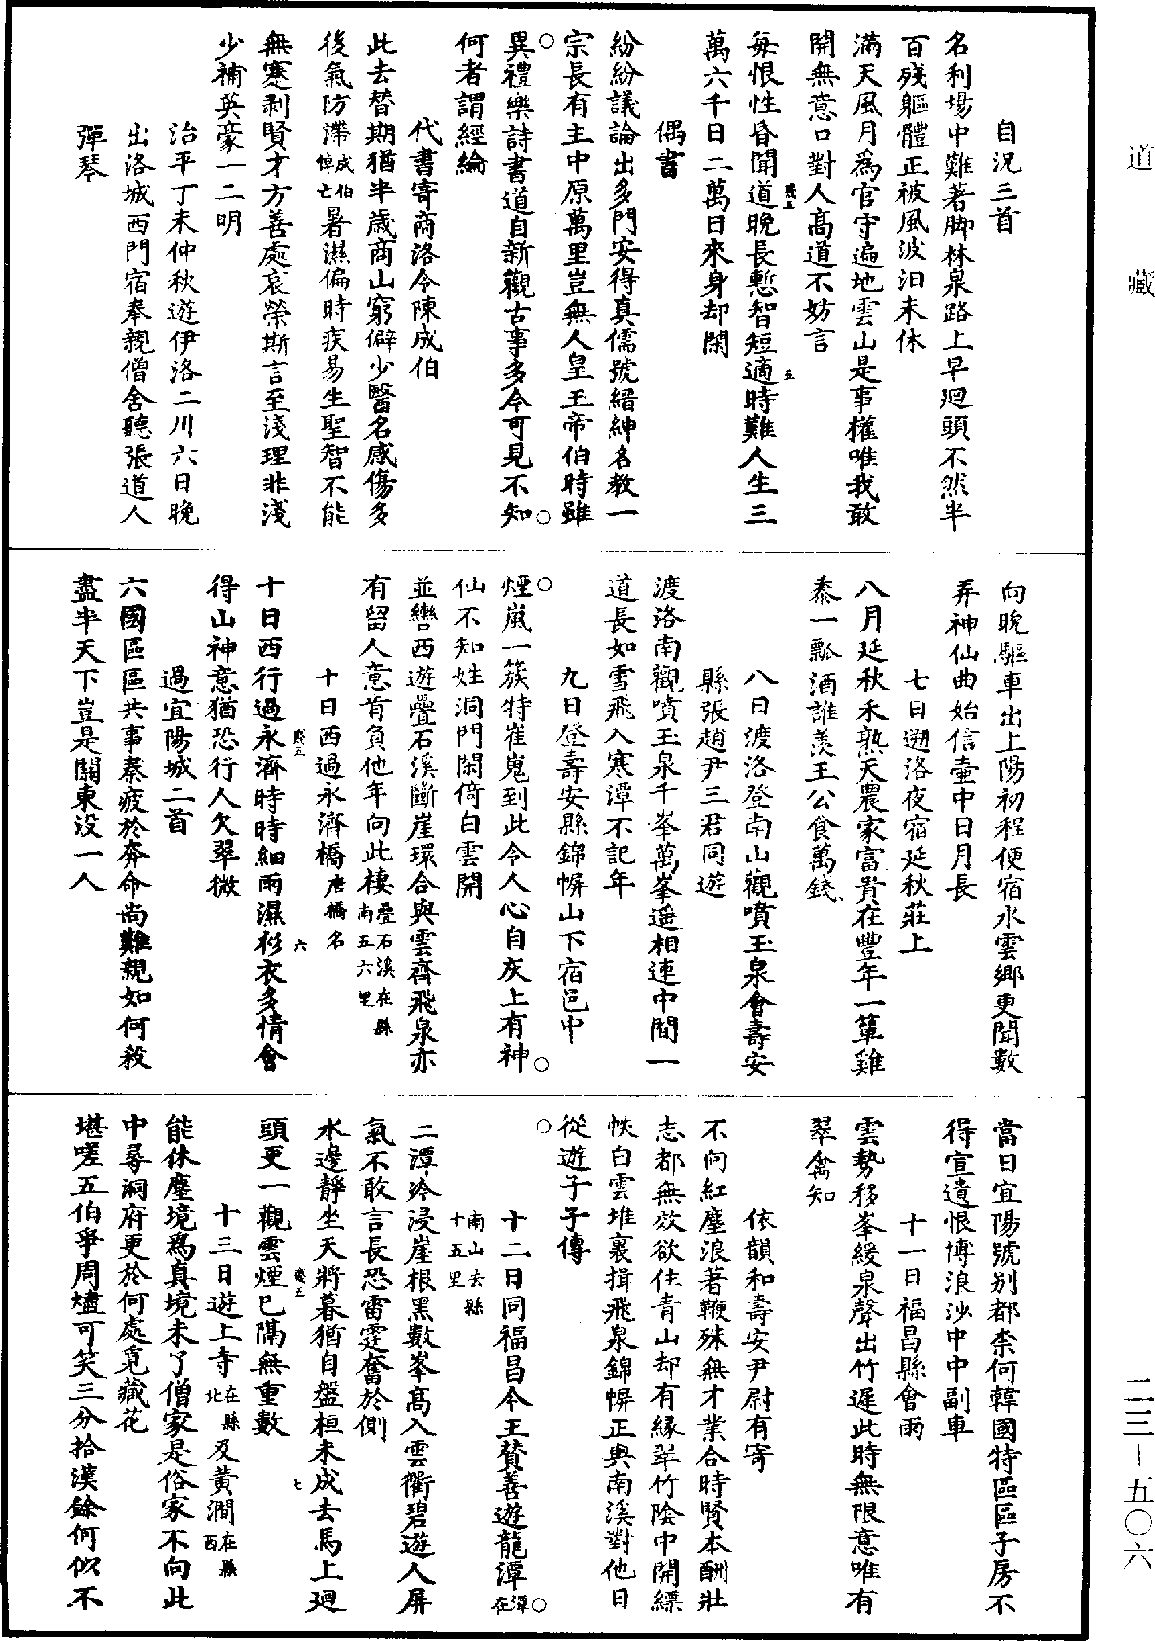 道藏
二三—五〇六
自況三首
名利場中難著脚林泉路上早廻頭不然半
百殘軀體正被風波汨未休
滿天風月爲官守遍地雲山是事權唯我敢
開無意口對人高道不妨言
每恨性昏聞道晚長慙智短適時難人生三
萬六千日二萬日來身却閑
偶書
紛紛議論出多門安得真儒號縉紳名教一
宗長有主中原萬里豈無人皇王帝伯時雖
異禮樂詩書道自新觀古事多今可見不知
何者謂經綸
代書寄商洛令陳成伯
此去替期猶半歲商山窮僻少醫名感傷多
後氣防滯成伯悼亡暑濕偏時疾易生聖智不能
無蹇剥賢才方善處哀榮斯言至淺理非淺
少補英豪一二明
治平丁未仲秋遊伊洛二川六日晚
出洛城西門宿奉親僧舍聽張道人
彈琴
向晚驅車出上陽初程便宿水雲鄉更聞數
弄神仙曲始信壷中日月長
七日遡洛夜宿延秋莊上
八月延秋禾熟天農家富貴在豐年一簞雞
黍一瓢酒誰羨王公食萬錢
八日渡洛登南山觀噴玉泉會壽安
縣張趙尹三君同遊
渡洛南觀噴玉泉千峯萬峯遥相連中間一
道長如雪飛入寒潭不記年
九日登壽安縣錦幈山下宿邑中
煙嵐一簇特崔嵬到此令人心自灰上有神
仙不知姓洞門閑倚白雲開
並轡西遊疊石溪斷崖環合與雲齊飛泉亦
有留人意肯負他年向此棲疊石溪在縣南五六里
十日西過永濟橋唐橋名
十日西行過永濟時時細雨濕衫衣多情會
得山神意猶恐行人欠翠微
過宜陽城二首
六國區區共事秦疲於奔命尚難親如何殺
盡半天下豈是關東没一人
當日宜陽號别都柰何韓國特區區子房不
得宣遺恨博浪沙中中副車
十一日福昌縣會雨
雲勢移峯緩泉聲出竹遲此時無限意唯有
翠禽知
依韻和壽安尹尉有寄
不向紅塵浪著鞭殊無才業合時賢本酬壯
志都無效欲住青山却有緣翠竹陰中開縹
帙白雲堆裏揖飛泉錦幈正與南溪對他日
從遊子子傳
十二日同福昌令王贊善遊龍潭潭在
南山去縣十五里
二潭冷浸崖根黑數峯高入雲衢碧遊人屏
氣不敢言長恐雷霆奮於側
水邊靜坐天將暮猶自盤桓未成去馬上廻
頭更一觀雲煙已隔無重數
十三日遊上寺在縣北及黃澗在縣西
能休塵境爲真境未了僧家是俗家不向此
中尋洞府更於何處覓藏花
堪嗟五伯爭周燼可笑三分拾漢餘何似不